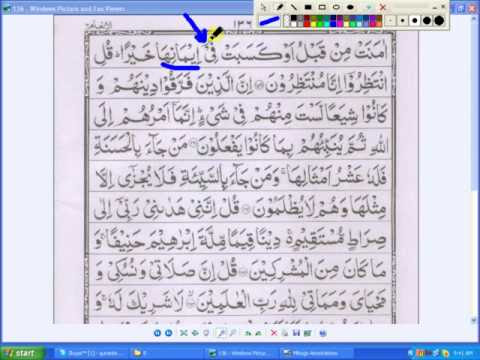 136 - Windows Picture and Fax Viewer
١٣٦
اٰمَنَتْ مِنْ قَبْلُ اَوْ كَسَبَتْ فِیْۤ اِیْمَانِهَا خَیْرًا ؕ قُلِ
انْتَظِرُوْۤا اِنَّا مُنْتَظِرُوْنَ ۝ اِنَّ الَّذِیْنَ فَرَّقُوْا دِیْنَهُمْ وَ
كَانُوْا شِیَعًا لَّسْتَ مِنْهُمْ فِیْ شَیْءٍ ؕ اِنَّمَاۤ اَمْرُهُمْ اِلَی
اللّٰهِ ثُمَّ یُنَبِّئُهُمْ بِمَا كَانُوْا یَفْعَلُوْنَ ۝ مَنْ جَآءَ بِالْحَسَنَةِ
فَلَهٗ عَشْرُ اَمْثَالِهَا ۚ وَمَنْ جَآءَ بِالسَّیِّئَةِ فَلَا یُجْزٰۤی اِلَّا
مِثْلَهَا وَهُمْ لَا یُظْلَمُوْنَ ۝ قُلْ اِنَّنِیْ هَدٰىنِیْ رَبِّیْۤ اِلٰی
صِرَاطٍ مُّسْتَقِیْمٍ ۚ۬ دِیْنًا قِیَمًا مِّلَّةَ اِبْرٰهِیْمَ حَنِیْفًا ۚ وَ
مَا كَانَ مِنَ الْمُشْرِكِیْنَ ۝ قُلْ اِنَّ صَلَاتِیْ وَ نُسُكِیْ وَ
مَحْیَایَ وَ مَمَاتِیْ لِلّٰهِ رَبِّ الْعٰلَمِیْنَ ۝ لَا شَرِیْكَ لَهٗ ۚ وَ
start 8 136 - Windows Pictur... Mirage Annotations 9:41 AM